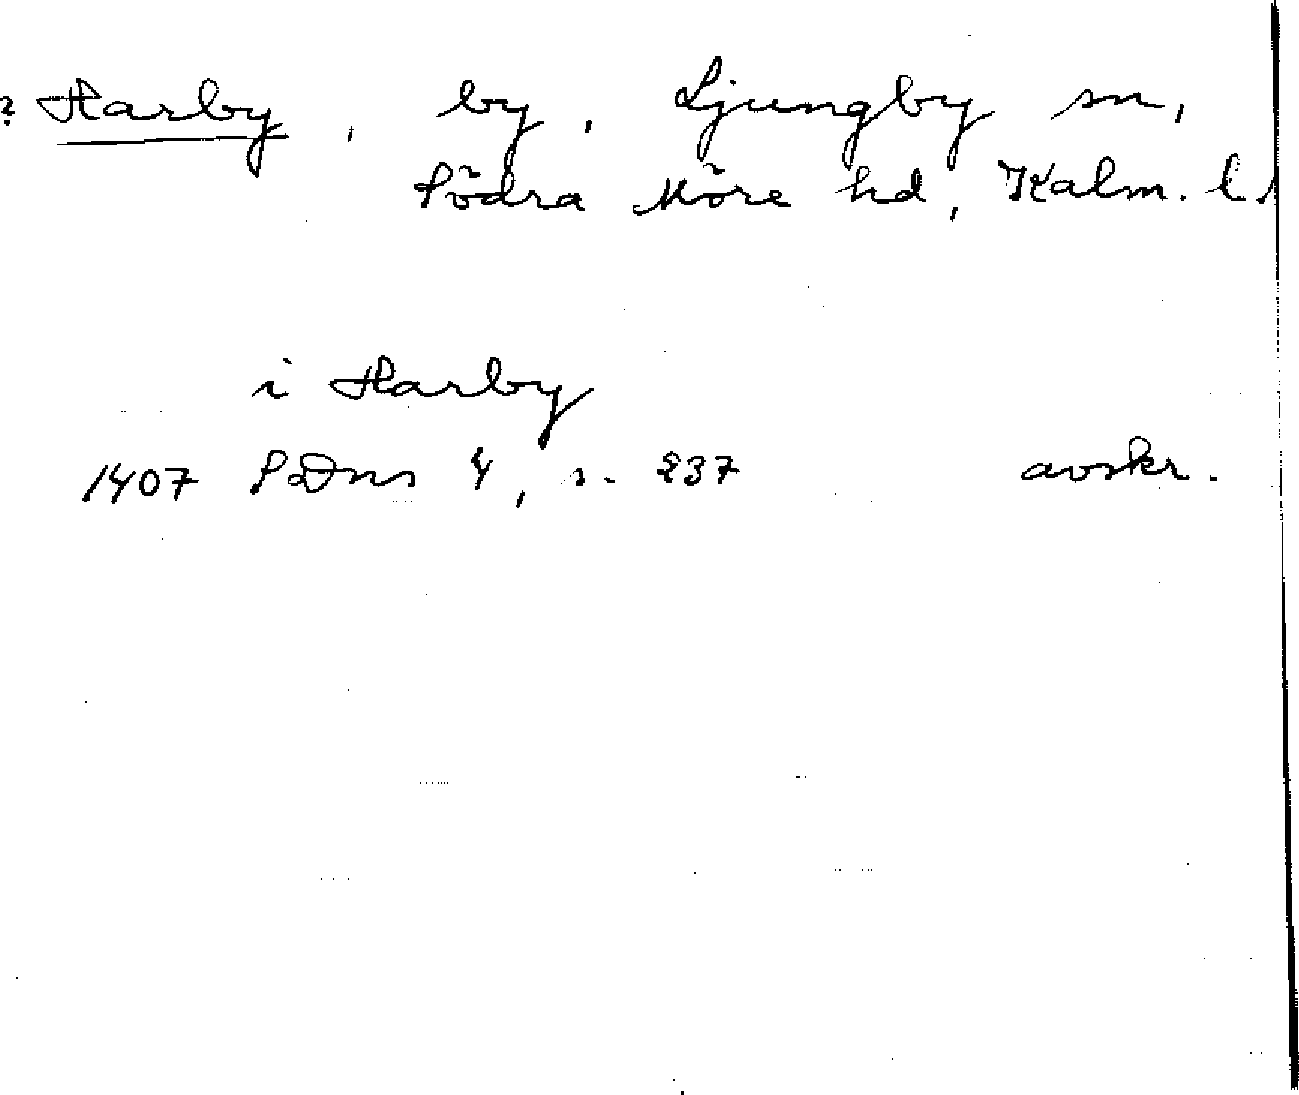 ? Harby, by, Ljungby sn,
Södra Möre hd, Kalm. l.
i Harby
1407 SDns 4, s. 237 avskr.